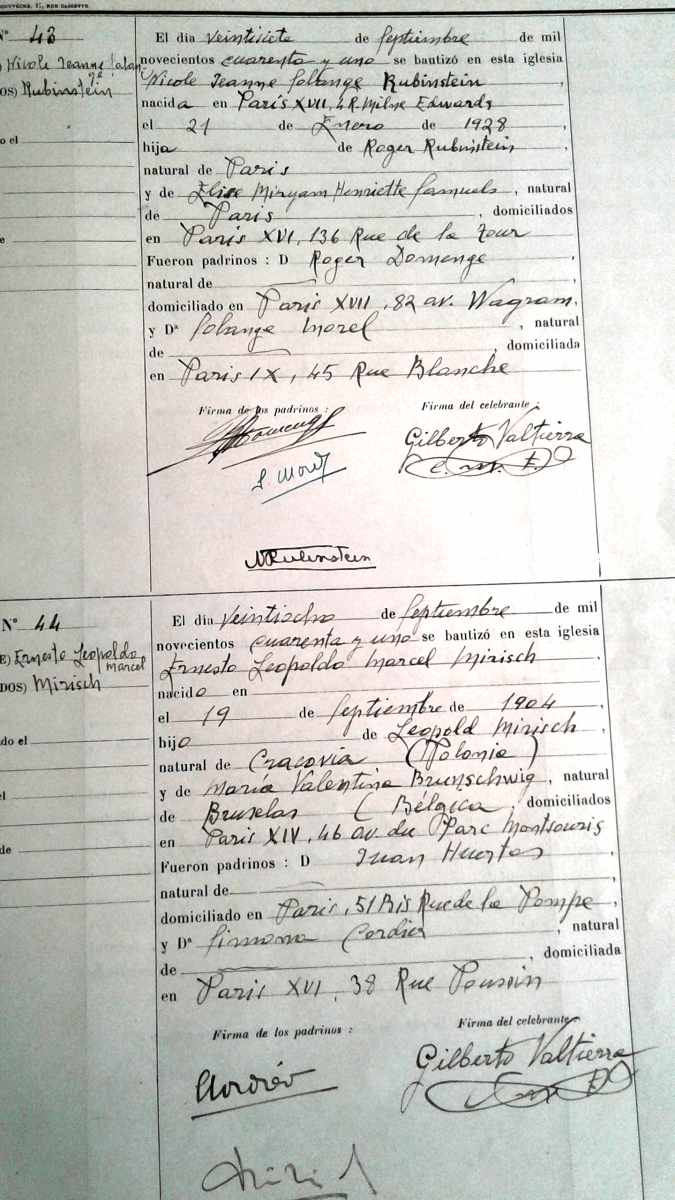 17, RUE CASSETTE.
N° 43
Nicole Jeanne Solan-
ge
OS) Rubinstein
El día veintisiete de Septiembre de mil
novecientos cuarenta y uno se bautizó en esta iglesia
Nicole Jeanne Solange Rubinstein
nacida en Paris XVII, 4 R. Milne Edwards
el 21 de Enero de 1928,
hija de Roger Rubinstein,
natural de Paris
y de Elise Miryam Henriette Samuels, natural
de Paris, domiciliados
en Paris XVI, 136 Rue de la Tour
Fueron padrinos : D Roger Domenge
natural de
domiciliado en Paris XVII, 82 av. Wagram,
y Dª Solange Morel, natural
de, domiciliada
en Paris IX, 45 Rue Blanche
Firma de los padrinos :
Firma del celebrante :
Gilberto Valtierra
C. M. F.
S. Morel
NRubinstein
N° 44
E) Ernesto Leopoldo
Marcel
DOS) Mirisch
El día Veintiocho de Septiembre de mil
novecientos cuarenta y uno se bautizó en esta iglesia
Ernesto Leopoldo Marcel Mirisch
nacido en
el 19 de Septiembre de 1904,
hijo de Leopold Mirisch,
natural de Cracovia (Polonia)
y de María Valentina Brunschwig, natural
de Bruselas (Bélgica, domiciliados
en Paris XIV, 46 av. du Parc Montsouris
Fueron padrinos : D Juan Huertas,
natural de
domiciliado en Paris, 51 Bis Rue de la Pompe,
y Dª Simona Cordier, natural
de, domiciliada
en Paris XVI, 38 Rue Poussin
Firma de los padrinos :
Firma del celebrante
Gilberto Valtierra